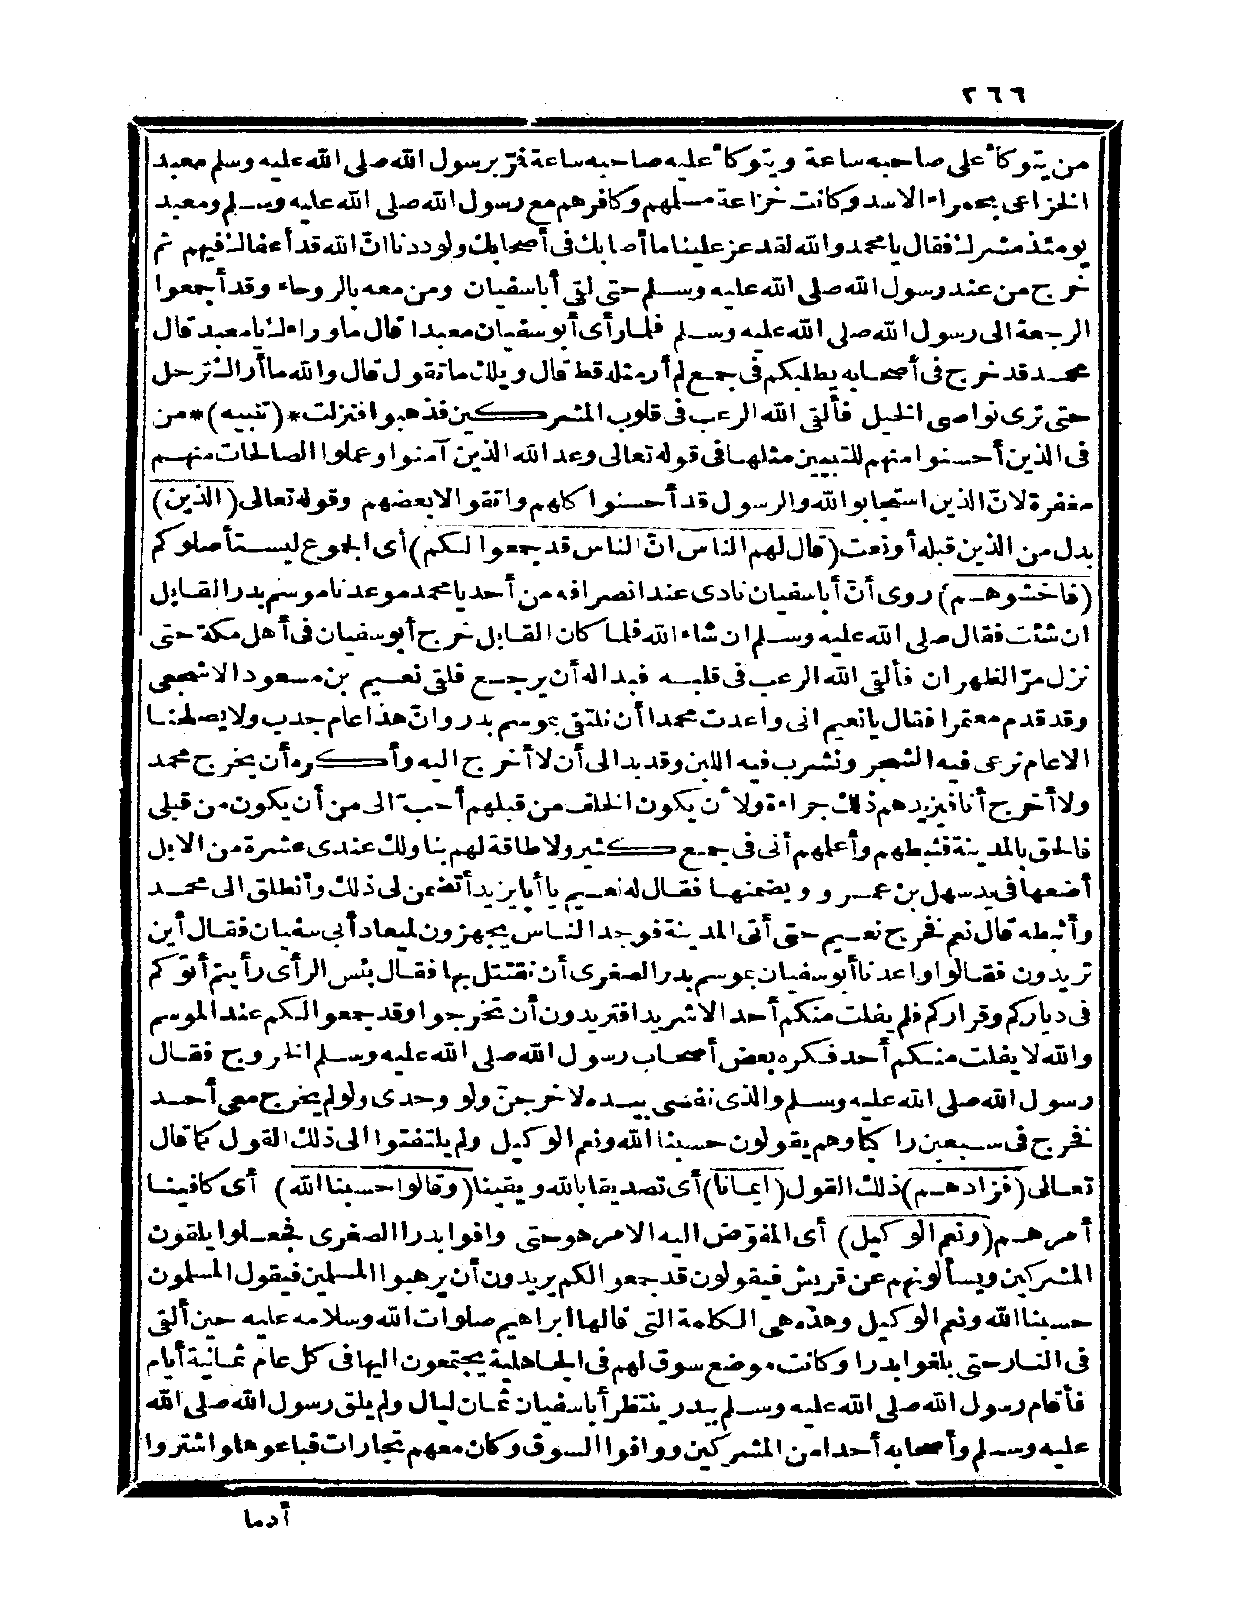 ٢٦٦
من يتوكأ على صاحبه ساعة ويتوكأ عليه صاحبه ساعة فمرّ برسول الله صلى الله عليه وسلم معبد
الخزاعى بحمراء الاسد وكانت خزاعة مسلمهم وكافرهم مع رسول الله صلى الله عليه وسلم ومعبد
يومئذ مشرك فقال يا محمد والله لقد عز علينا ما أصابك فى أصحابك ولوددنا انّ الله قد أعفاك فيهم ثم
خرج من عند رسول الله صلى الله عليه وسلم حتى لقى أبا سفيان ومن معه بالروحاء وقد أجمعوا
الرجعة الى رسول الله صلى الله عليه وسلم فلما رأى أبو سفيان معبدا قال ما وراءك يا معبد قال
محمد قد خرج فى أصحابه يطلبكم فى جمع لم أر مثله قط قال ويلك ما تقول قال والله ما أراك ترحل
حتى ترى نواصى الخيل فألقى الله الرعب فى قلوب المشركين فذهبوا فنزلت *(تنبيه)* من
فى الذين أحسنوا منهم للتبيين مثلها فى قوله تعالى وعد الله الذين آمنوا وعملوا الصالحات منهم
مغفرة لانّ الذين استجابوا لله والرسول قد أحسنوا كلهم واتقوا لا بعضهم وقوله تعالى (الذين)
بدل من الذين قبله أو نعت (قال لهم الناس انّ الناس قد جمعوا لكم) أى الجموع ليستأصلوكم
(فاخشوهم) روى أنّ أبا سفيان نادى عند انصرافه من أحد يا محمد موعدنا موسم بدر القابل
ان شئت فقال صلى الله عليه وسلم ان شاء الله فلما كان القابل خرج أبو سفيان فى أهل مكة حتى
نزل مرّ الظهران فألقى الله الرعب فى قلبه فبدا له أن يرجع فلقى نعيم بن مسعود الاشجعى
وقد قدم معتمرا فقال يا نعيم انى واعدت محمدا أن نلتقى بموسم بدر وانّ هذا عام جدب ولا يصلحنا
الا عام نرعى فيه الشجر ونشرب فيه اللبن وقد بدا لى أن لا أخرج اليه وأكره أن يخرج محمد
ولا أخرج أنا فيزيدهم ذلك جراءة ولأن يكون الخلف من قبلهم أحبّ الىّ من أن يكون من قبلى
فالحق بالمدينة فثبطهم وأعلمهم أنى فى جمع كثير ولا طاقة لهم بنا ولك عندى عشرة من الابل
أضعها فى يد سهل بن عمرو ويضمنها فقال له نعيم يا أبا يزيد أتضمن لى ذلك وأنطلق الى محمد
وأثبطه قال نعم فخرج نعيم حتى أتى المدينة فوجد الناس يتجهزون لميعاد أبى سفيان فقال أين
تريدون فقالوا واعدنا أبو سفيان بموسم بدر الصغرى أن نقتتل بها فقال بئس الرأى رأيتم أتوكم
فى دياركم وقراركم فلم يفلت منكم أحد الا شريد افتريدون أن تخرجوا وقد جمعوا لكم عند الموسم
والله لا يفلت منكم أحد فكره بعض أصحاب رسول الله صلى الله عليه وسلم الخروج فقال
رسول الله صلى الله عليه وسلم والذى نفسى بيده لاخرجنّ ولو وحدى ولو لم يخرج معى أحد
فخرج فى سبعين راكبا وهم يقولون حسبنا الله ونعم الوكيل ولم يلتفتوا الى ذلك القول كما قال
تعالى (فزادهم) ذلك القول (ايمانا) أى تصديقا بالله ويقينا (وقالوا حسبنا الله) أى كافينا
أمرهم (ونعم الوكيل) أى المفوّض اليه الامر هو حتى وافوا بدرا الصغرى فجعلوا يلقون
المشركين ويسألونهم عن قريش فيقولون قد جمعوا لكم يريدون أن يرهبوا المسلمين فيقول المسلمون
حسبنا الله ونعم الوكيل وهذه هى الكلمة التى قالها ابراهيم صلوات الله وسلامه عليه حين ألقى
فى النار حتى بلغوا بدرا وكانت موضع سوق لهم فى الجاهلية يجتمعون اليها فى كل عام ثمانية أيام
فأقام رسول الله صلى الله عليه وسلم ببدر ينتظر أبا سفيان ثمان ليال ولم يلق رسول الله صلى الله
عليه وسلم وأصحابه أحدا من المشركين ووافوا السوق وكان معهم تجارات فباعوها واشتروا
أدما